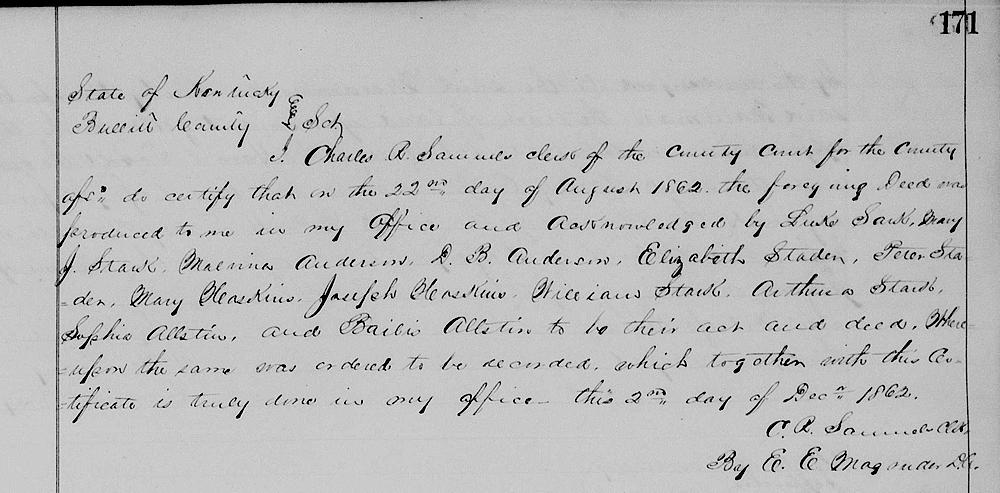 171
State of Kentucky
Bullitt County } Sct
I. Charles R. Samuels clerk of the County Court for the County
afsd. do certify that on the 22nd day of August 1862. the foregoing Deed was
produced to me in my Office and Acknowledged by Luke Stark, Mary
J. Stark. Malvina Anderson, D. B. Anderson, Elizabeth Staden, Peter Sta-
-den, Mary Hoskins. Joseph Hoskins. William Stark. Arthusa Stark,
Sophia Allstin, and Bailis Allstin to be their act and deed, Where-
-upon the same was ordered to be recorded, which together with this Cer-
-tificate is truly done in my office- this 2nd day of Decr 1862.
C. R. Samuels Clk.
By E. E Magruder D.C.